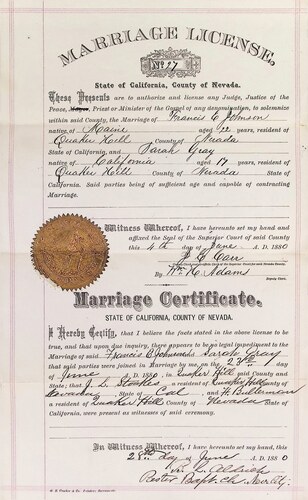 MARRIAGE LICENSE,
No. 27
State of California, County of Nevada.
These Presents are to authorize and license any Judge, Justice of the
Peace, Mayor, Priest or Minister of the Gospel of any denomination, to solemnize
within said County, the Marriage of Francis C. Johnson
native of Maine aged 22 years, resident of
Quaker Hill County of Nevada
State of California, and Sarah Gray
native of California aged 17 years, resident of
Quaker Hill County of Nevada State of
California. Said parties being of sufficient age and capable of contracting
Marriage.
Witness Whereof, I have hereunto set my hand and
affixed the Seal of the Superior Court of said County
this 4th day of June A. D. 1880
Carr
By Wm. H. Adams
Deputy Clerk.
Marriage Certificate.
STATE OF CALIFORNIA, COUNTY OF NEVADA.
I Hereby Certify, that I believe the facts stated in the above license to be
true, and that upon due inquiry, there appears to be no legal impediment to the
Marriage of said Francis C Johnson & Sarah Gray
that said parties were joined in Marriage by me, on the day
of June A. D. 1880, in Quaker Hill said County and
State; that J. L. a resident of Quaker Hill
County of Nevada, State of Cal and W.
a resident of Quaker Hill County of Nevada State of
California, were present as witnesses of said ceremony.
In Witness Whereof, I have hereunto set my hand, this
28th day of June A. D. 1880